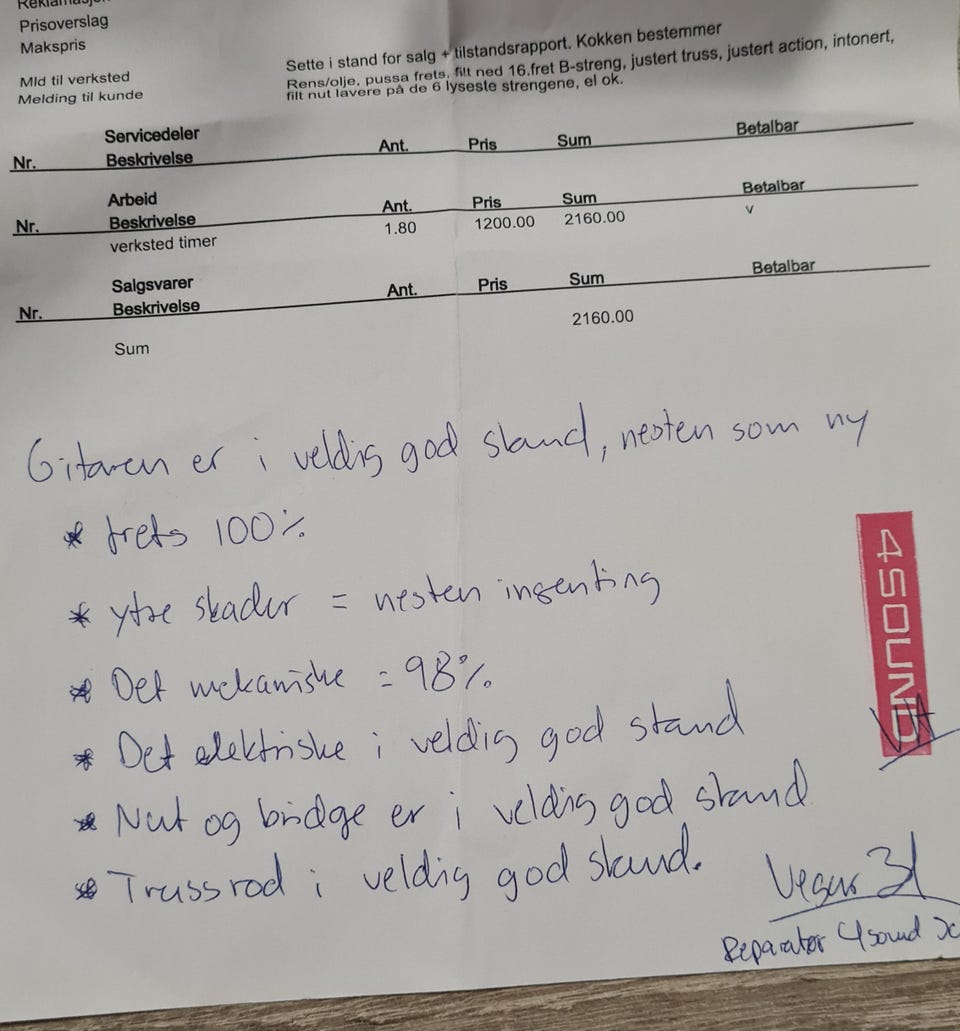 Reklamasjon
Prisoverslag
Makspris
Mld til verksted Sette i stand for salg + tilstandsrapport. Kokken bestemmer
Melding til kunde Rens/olje, pussa frets, filt ned 16.fret B-streng, justert truss, justert action, intonert,
filt nut lavere på de 6 lyseste strengene, el ok.
Servicedeler
Nr. Beskrivelse Ant. Pris Sum Betalbar
Arbeid
Nr. Beskrivelse Ant. Pris Sum Betalbar
verksted timer 1.80 1200.00 2160.00 v
Salgsvarer
Nr. Beskrivelse Ant. Pris Sum Betalbar
Sum 2160.00
Gitaren er i veldig god stand, nesten som ny
* frets 100%
* ytre skader = nesten ingenting
* Det mekaniske = 98%
* Det elektriske i veldig god stand
* Nut og bridge er i veldig god stand
* Trussrod i veldig god stand.
4SOUND
Vegar
Reparatør 4sound